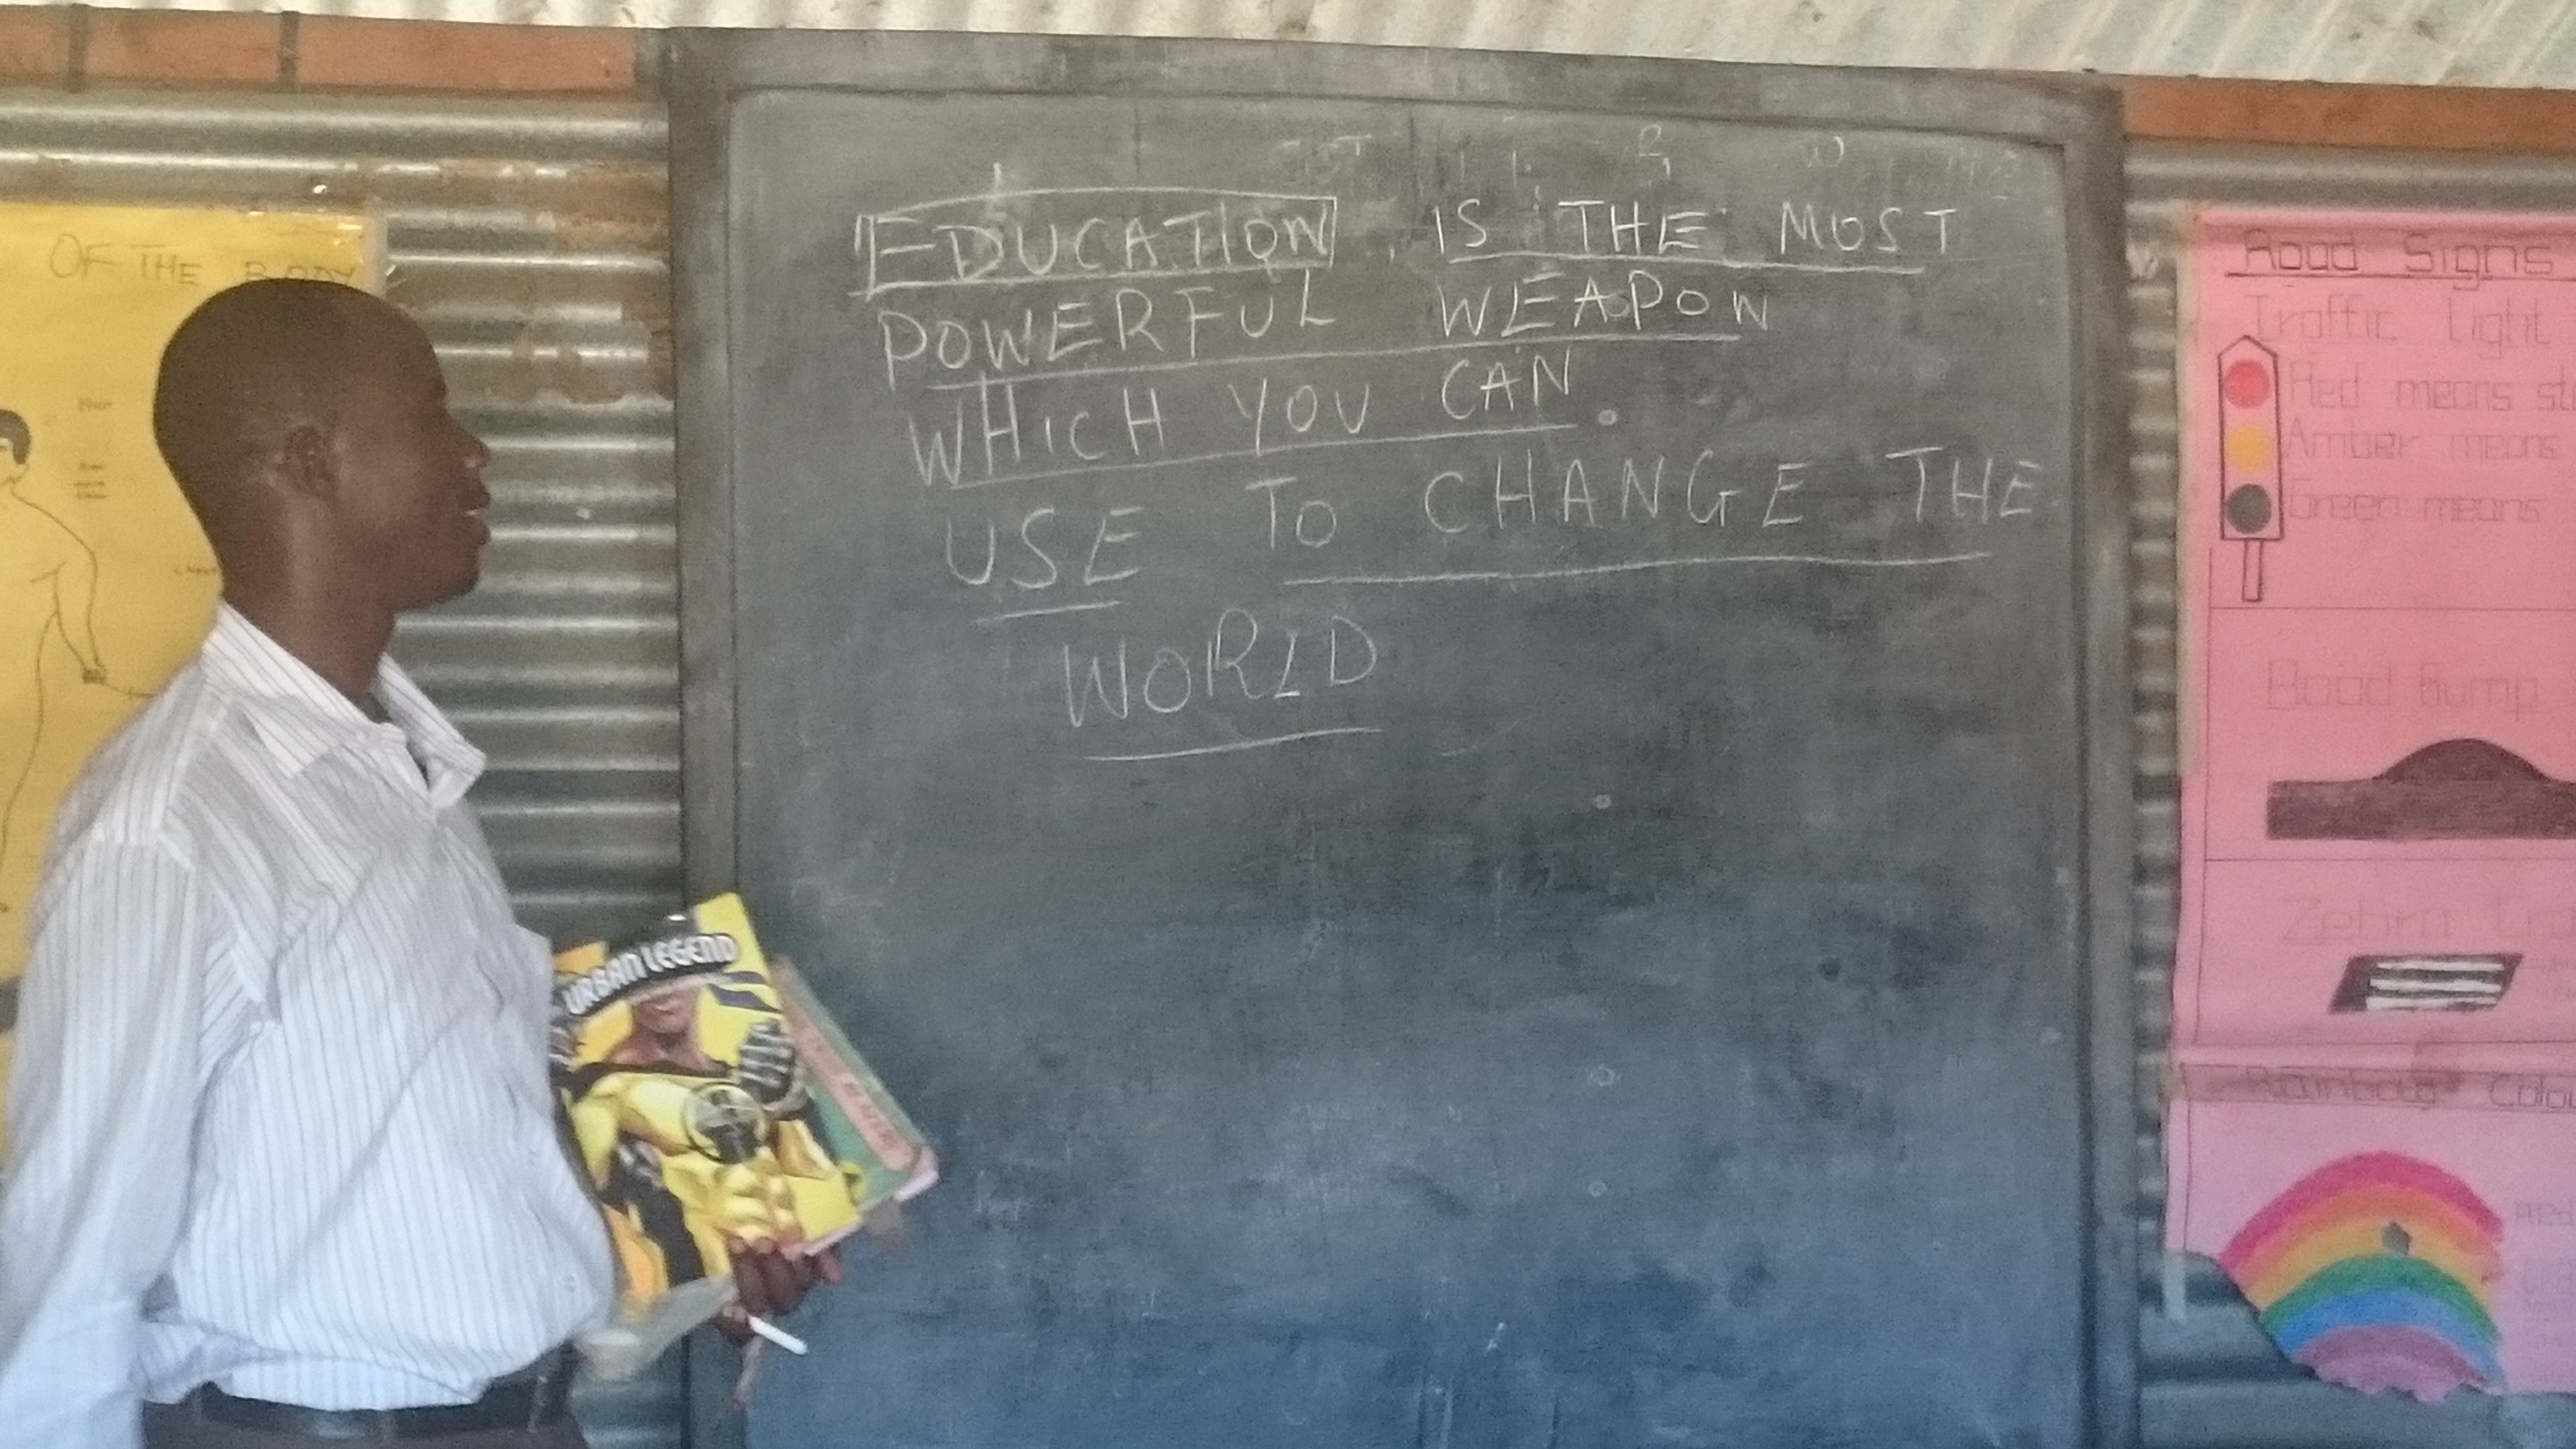 OF THE BODY
EDUCATION IS THE MOST
POWERFUL WEAPON
WHICH YOU CAN.
USE TO CHANGE THE
WORLD
URBAN LEGEND
Road Signs
Traffic light
Red means
Amber means
Green means
Road Bump
Zebra
Rainbow